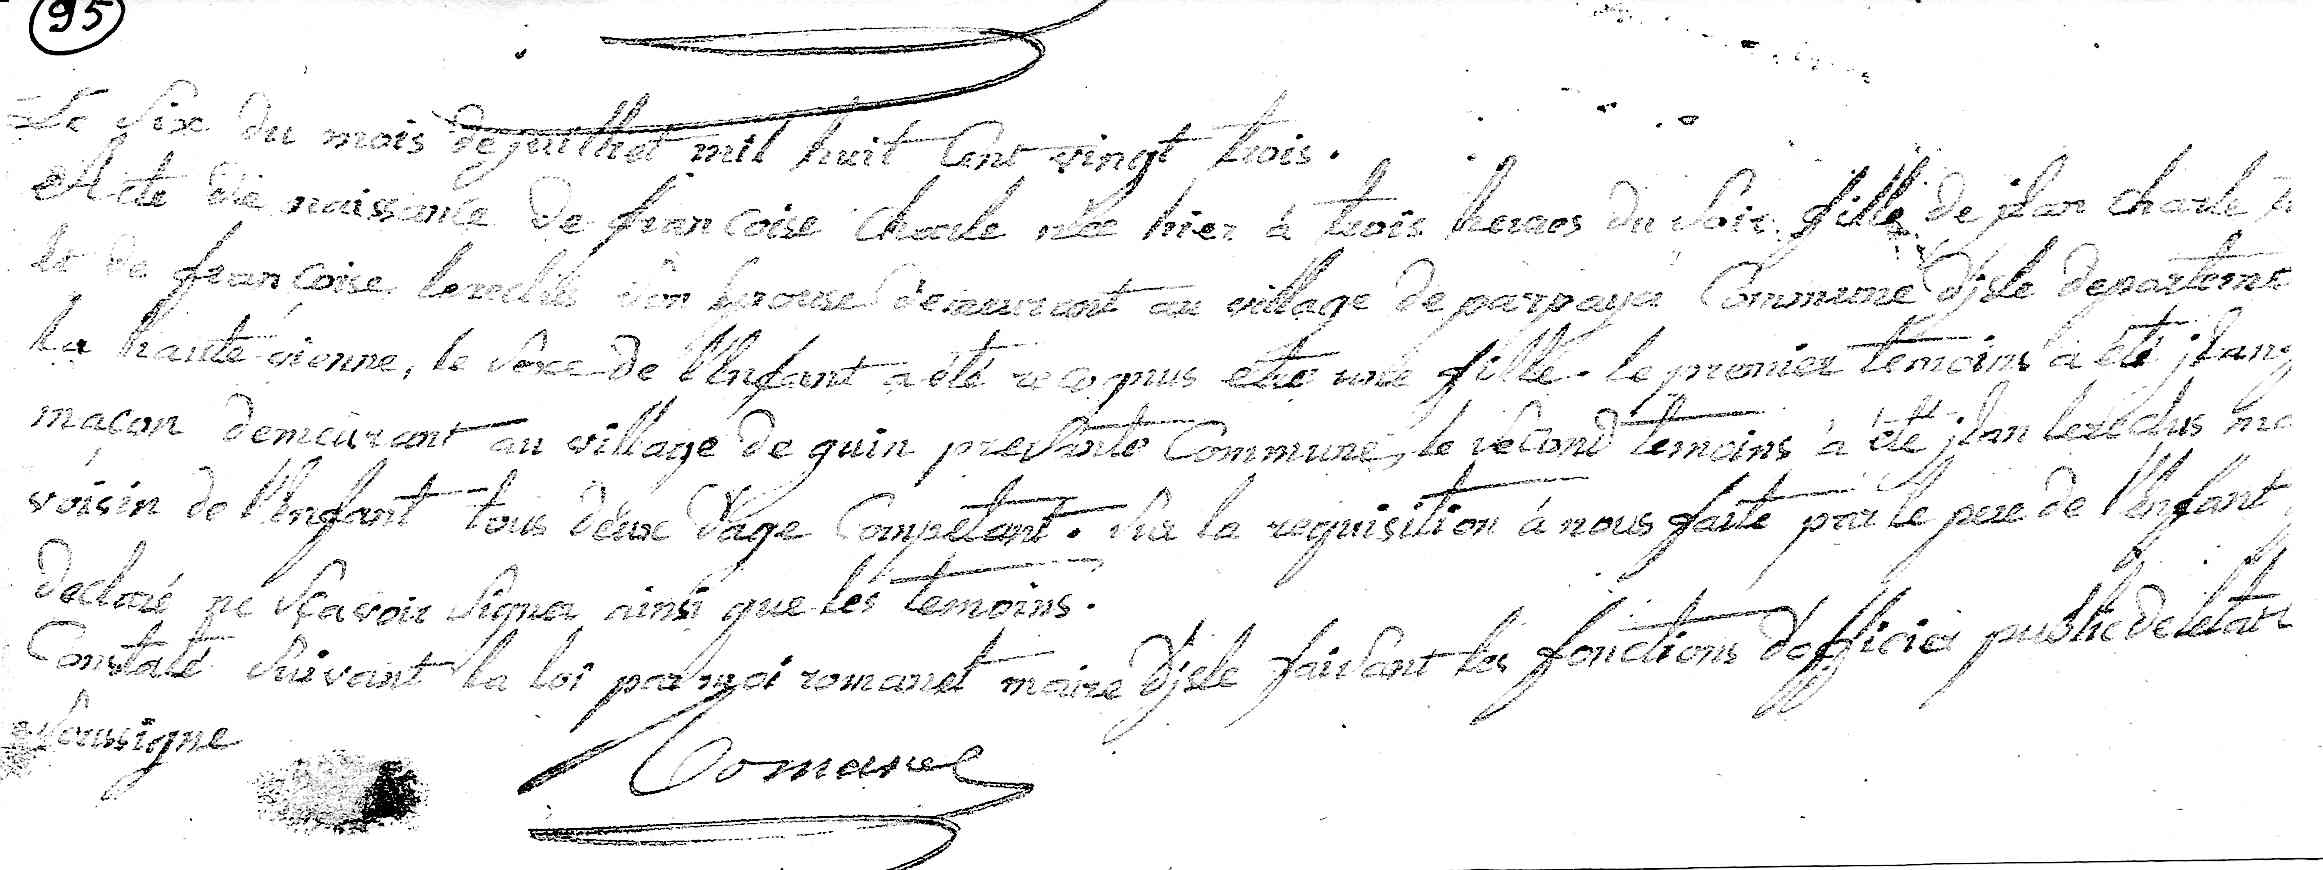 95
Le Six du mois de juillet mil huit Cent vingt trois.
Acte de naissance de françoise Charle née hier à trois heures du Soir fille de jean charle
et de françoise Son Epouse demeurant au village de parpaya Commune D'jsle departeme
La haute vienne, le Sexe de l'Enfant a été recognus etre une fille. le premier temoins a été jean
maçon demeurant au village de guin presente Commune, le Second temoins à été jean
voisin de l'Enfant tous deux d'age Competant. Sur la requisition à nous faite par le pere de l'Enfant
declaré ne Sçavoir Signer ainsi que les temoins.
Constaté Suivant la loi par moi romanet maire D'jsle faisant les fonctions d'officier public de letat
Soussigne
Romanet